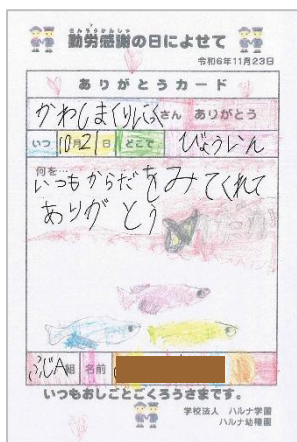 勤労感謝の日によせて
令和6年11月23日
ありがとうカード
かわしまくりにっくさん ありがとう
いつ 10月21日 どこで びょういん
何を…
いつもからだをみてくれて
ありがとう
ふじA組 名前
いつもおしごとごくろうさまです。
学校法人 ハルナ学園
ハルナ幼稚園